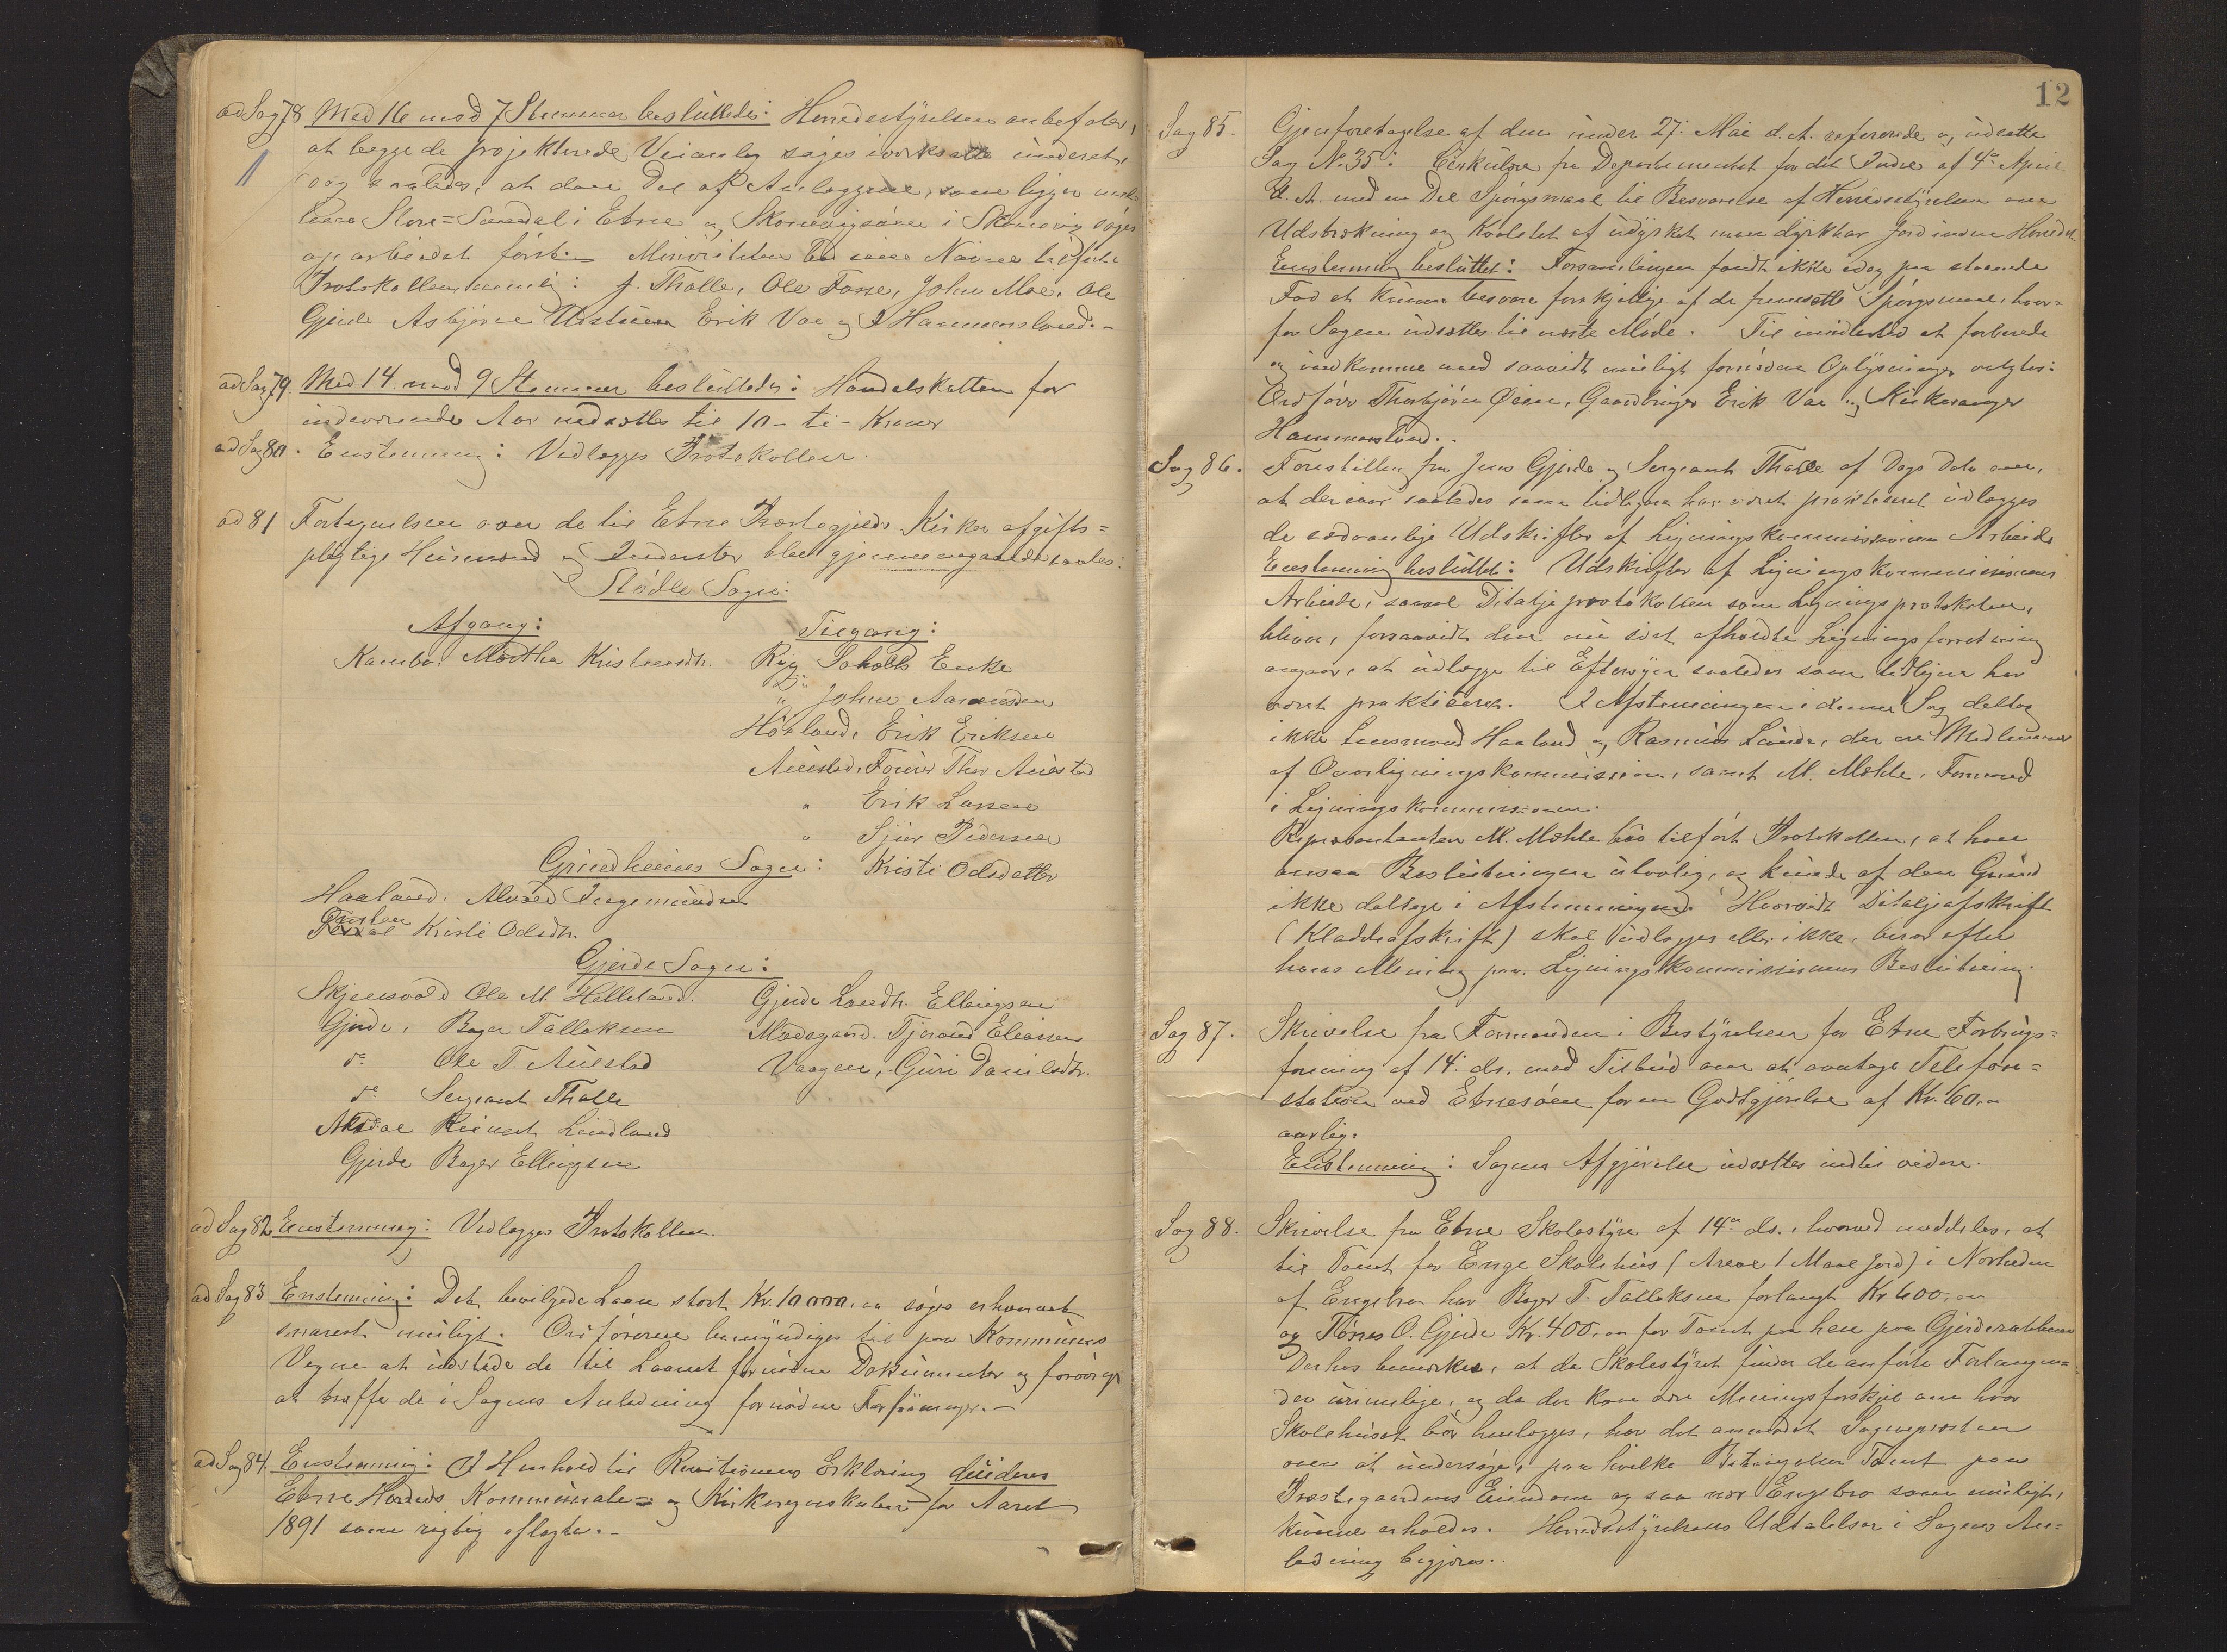 ad Sag 78 Med 16 mod 7 Stemmer besluttedes: Herredsstyrelsen anbefaler,
at begge de projekterede Veianlæg søges iverksatte underet,
dog saaledes, at den Del af Anlæggene, som ligger mel-
lem Store=Sandal i Etne og Skonevigsøen i Skonevig søges
oparbeidet først. Minoriteten bad sine Navne tilført
Protokollen nemlig: J. Thalle, Ole Fosse, John Moe, Ole
Gjerde Asbjørn Erik Vae og I Hammersland.-
ad Sag 79. Med 14 mod 9 Stemmer besluttedes: Handelskatten for
indeværende Aar nedsættes til 10 - ti - Kroner
ad Sag 80. Enstemmig: Vedlægges Protokollen.
ad 81 Fortegnelsen over de til Etne Præstegjelds Kirker afgifts=
pligtige Husmænd og Inderster blev gjennemgaaet saales:
Stødle Sogn:
Afgang: Tilgang:
Kambe. Martha Kristensdtr. Ryg Enke
D: " John Aamundsen
Høiland, Erik Eriksen
Auestad, Fourer Thor Auestad
" Erik Larsen
" Sjur Pedersen
Grindheims Sogn: Kristi Odsdatter
Haaland. Alvsed Ingemundsen
Østen Kristi Odsdtr.
Gjerde Sogn:
Skjensvold Ole M. Helleland. Gjerde Ellingsen
Gjerde, Bager Tallaksen Mødegaard. Tjerand Eliassen
do Ole T. Auestad Vaagen, Guri Danielsdtr.
do Sergeant Thalle
Reinert Lindland
Gjerde Bager Ellingsen
ad Sag 82 Enstemmig: Vedlægges Protokollen.
ad Sag 83 Enstemmig: Det bevilgede Laan stort Kr. 10000,00 søges erhvervet
snarest muligt. Ordføreren bemyndiges til paa Kommunens
Vegne at udstede de til Laanet fornødne Dokumenter og forøvrigt
at træffe de i Sagens Anledning fornødne Forføininger.-
ad Sag 84. Enstemmig: I Henhold til Revisionens Erklæring desideres
Etne Herreds Kommunale- og Kirkeregnskaber for Aaret
1891 som rigtig aflagte.-
12
Sag 85. Gjenforetagelse af den under 27. Mai d. A. refererede og udsatte
Sag No. 35: Cirkulære fra Departementet for det Indre af 4de April
d. A. med en Del Spørgsmaal til Besvarelse af Herredsstyrelsen om
Udstrækning og Kvalitet af udyrket men dyrkbar Jord inden Herredet
Enstemmig besluttet: Forsamlingen fandt ikke idag paa staaende
Fod at kunne besvare forskjellige af de fremsatte Spørgsmaal, hvor=
for Sagen udsættes til næste Møde. Til imidlertid at forberede
og indkomme med saavidt muligt fornødne Oplysninger valgtes:
Ordfører Thorbjørn Øien, Gaardbruger Erik Vae og Kirkesanger
Hammersland..
Sag 86. Forestilling fra Jens Gjerde og Sergeant Thalle af Dags Dato om,
at der iaar saaledes som tidligere har været praktiseret udlægges
de sædvanlige Udskrifter af Ligningskommissionens Arbeide
Enstemmig besluttet: Udskrifter af Ligningskommissionens
Arbeide, saavel Ditalje protokollen som Ligningsprotokollen,
bliver, forsaavidt den nu sidst afholdte Ligningsforretning
angaar, at udlægge til Eftersyn saaledes som tidligere har
været praktiseret. I Afstemningen i denne Sag deltog
ikke Lensmand Haaland og Rasmus Lunde, der ere Medlemmer
af Overligningskommission, samt M. Mæhle, Formand
i Ligningskommissionen.
Repræsentanten M. Mæhle bad tilført Protokollen, at han
ansaa Beslutningen ulovlig, og kunde af den Grund
ikke deltage i Afstemningen. Hvorvidt Ditaljeafskrift
(Kladdeafskrift) skal udlægges eller ikke, beror efter
hans Mening paa Ligningskommissionens Beslutning.
Sag 87. Skrivelse fra Formanden i Bestyrelsen for Etne Forbrugs=
forening af 14. ds. med Tilbud om at overtage Telefon=
station ved Etnesøen for en Godtgjørelse af Kr. 60.00
aarlig.
Enstemmig: Sagens Afgjørelse udsættes indtil videre.
Sag 88. Skrivelse fra Etne Skolestyre af 14de ds., hvorved meddeles, at
til Tomt for Enge Skolehus (Areal 1 Maal Jord) i Nærheden
af Engebro har Bager T. Tallaksen forlangt Kr 600,00
og Tønnes O. Gjerde Kr. 400,00 for Tomt paa hen paa Gjerderabben
Derhos bemærkes, at da Skolestyret finder de anførte Forlangen=
der urimelige, og da der kan være Meningsforskjel om hvor
Skolehuset bør henlægges, har det anmodet Sognepresten
om at undersøge, paa hvilke Betingelser Tomt paa
Præstegaardens Eiendom og saa nær Engebro som muligt,
kunne erholdes. Herredsstyrelsens Udtalelser i Sagens An=
ledning begjæres..